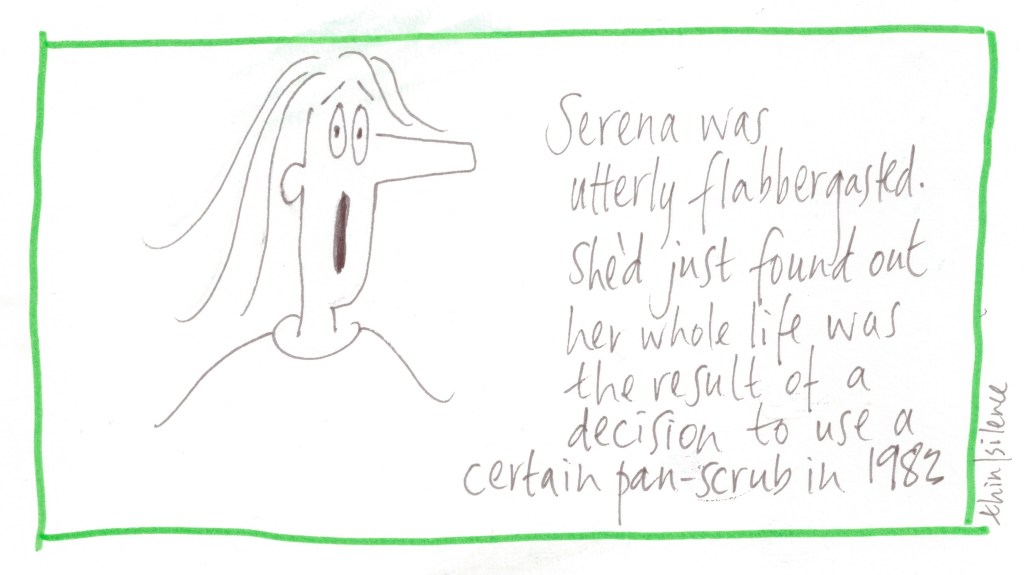 Serena was
utterly flabbergasted.
She'd just found out
her whole life was
the result of a
decision to use a
certain pan-scrub in 1982
thin|silence